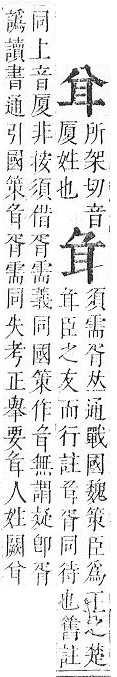 所架切音
厦姓也
須需胥𠀤通戰國魏策臣爲王之楚
臣之友而行註胥同待也舊註
同上音厦非按須借胥需義同國策作無謂疑卽胥
譌讀書通引國策胥需同失考正舉要人姓闕